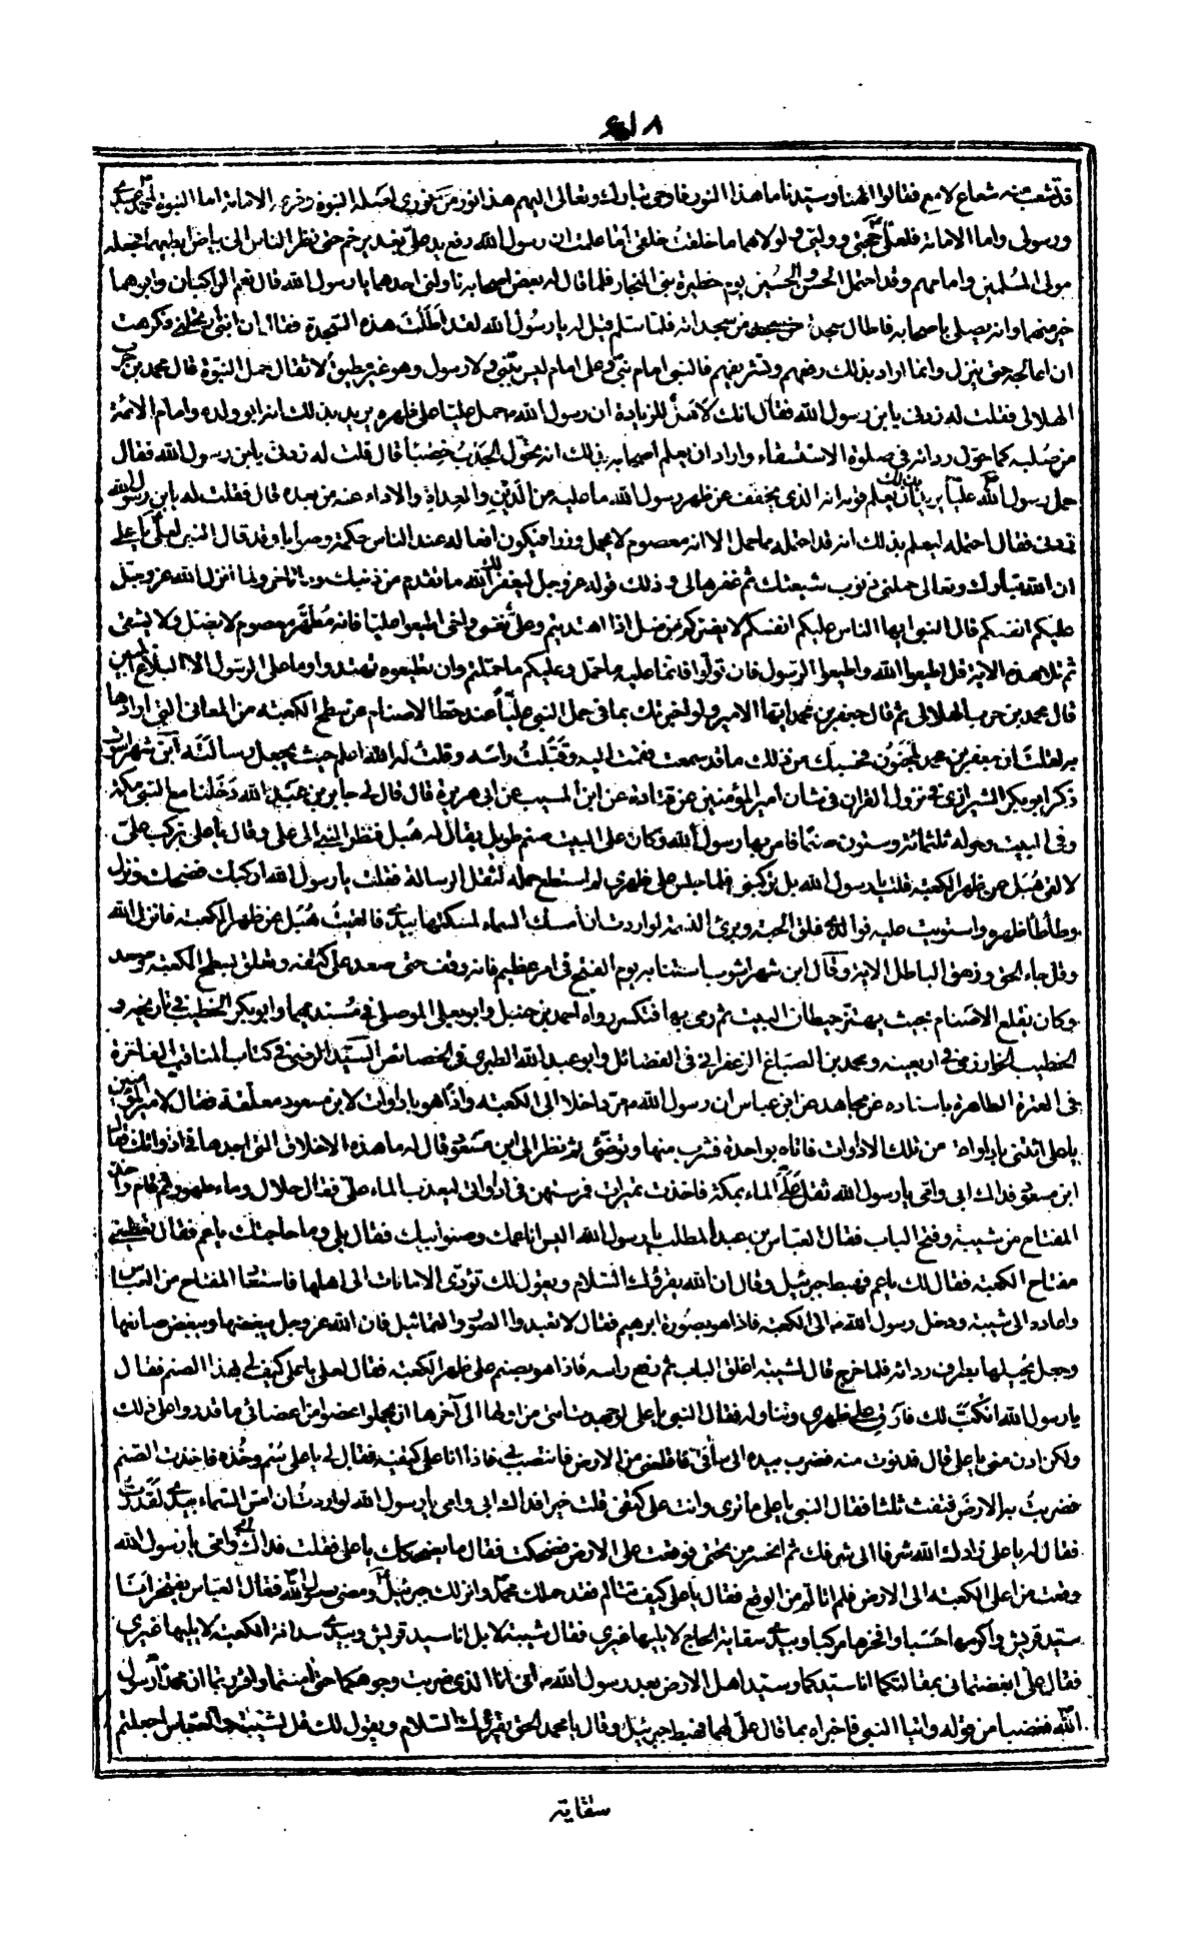 قد تشعب منه شعاع لامع فقالوا الهنا وسيدنا ما هذا النور فاوحى تبارك وتعالى اليهم هذا نور من نوري اصله النبوة وفرعه الامامة اما النبوة لمحمد عبدي
ورسولى واما الامامة فلعلى حجتى ووليى ولولاهما ما خلقت خلقى اما علمت ان رسول الله رفع يد على بغدير خم حتى نظر الناس الى بياض ابطيهما فجعله
مولى المسلمين وامامهم وقد احتمل الحسن والحسين يوم حظيرة بنى النجار فلما قال له بعض اصحابه ناولنى احدهما يا رسول الله قال نعم الراكبان وابوهما
خير منهما وانه يصلى باصحابه فاطال سجدة من سجداته فلما سلم قيل له يا رسول الله لقد اطلت هذه السجدة فقال ان ابنى فكرهت
ان اعالجه حتى ينزل وانما اراد بذلك رفعهم وتشريفهم فالنبى امام نبى وعلى امام ليس بنبى ولا رسول وهو غير مطيق لاثقال حمل النبوة قال محمد بن حرب
الهلالى فقلت له زدنى يا بن رسول الله فقال انك لاهل للزيادة ان رسول الله حمل عليا على ظهره يريد بذلك انه ابو ولده وامام الائمة
من صلبه كما حول ردائه فى صلوة الاستسقاء واراد ان يعلم اصحابه بذلك انه تحول الجدب خصبا قال قلت له زدنى يا بن رسول الله فقال
حمل رسول الله عليا يريد بذلك ان يعلم قومه انه الذى يخفف عن ظهر رسول الله ما عليه من الدين والعداة والاداء عنه من بعده قال فقلت له يا بن رسول الله
زدنى فقال احتمله ليعلم بذلك انه قد احتمله وما حمل الا انه معصوم لا يحمل وزرا فيكون افعاله عند الناس حكمة وصوابا وقد قال النبى لعلى يا على
ان الله تبارك وتعالى حملنى ذنوب شيعتك ثم غفرها لى وذلك قوله عز وجل ليغفر لك الله ما تقدم من ذنبك وما تاخر ولما انزل الله عز وجل
عليكم انفسكم قال النبى ايها الناس عليكم انفسكم لا يضركم من ضل اذا اهتديتم وعلى نفسى واخى اطيعوا عليا فانه مطهر معصوم لا يضل ولا يشقى
ثم تلا هذه الاية قل اطيعوا الله واطيعوا الرسول فان تولوا فانما عليه ما حمل وعليكم ما حملتم وان تطيعوه تهتدوا وما على الرسول الا البلاغ المبين
قال محمد بن حرب الهلالى ثم قال جعفر بن محمد ايها الامير ولو اخبرتك بما فى حمل النبى عليا عند حط الاصنام عن سطح الكعبه من المعانى التى ارادها
به لقلت ان جعفر بن محمد لمجنون فحسبك من ذلك ما قد سمعت فقمت اليه وقبلت راسه وقلت له الله اعلم حيث يجعل رسالته ابن شهراشوب
ذكر ابو بكر الشيرازى فى نزول القران فى شان امير المؤمنين عن قتادة عن ابن المسيب عن ابى هريرة قال قال لى جابر بن عبد الله دخلنا مع النبى مكة
وفى البيت وحوله ثلثمائة وستون صنما فامر بها رسول الله وكان على البيت صنم طويل يقال له هبل فنظر النبى الى على وقال يا على تركب على
لالقى هبل عن ظهر الكعبه قلت يا رسول الله بل تركبنى فلما جلس على ظهرى لم استطع حمله لثقل الرسالة فقلت يا رسول الله اركبك فضحك ونزل
وطأطأ ظهره واستويت عليه فوالذى فلق الحبة وبرئ النسمة لو اردت ان امسك السماء لمسكتها بيدى فالقيت هبل عن ظهر الكعبه فانزل الله
وقل جاء الحق وزهق الباطل الاية وقال ابن شهراشوب استنابه يوم الفتح فى امر عظيم فانه وقف حتى صعد على كتفه وتعلق بسطح الكعبه وصعد
وكان يقلع الاصنام بحيث يهتز حيطان البيت ثم رمى بها فتكسر رواه احمد بن حنبل وابو يعلى الموصلى فى مسنديهما وابو بكر الخطيب فى تاريخه و
الخطيب الخوارزمى فى اربعينه ومحمد بن الصباغ الزعفرانى فى الفضائل وابو عبد الله الطبرى فى الخصائص السيد الرضى فى كتاب المناقب الفاخرة
فى العترة الطاهرة باسناده عن مجاهد عن ابن عباس ان رسول الله مر داخلا الى الكعبه واذا هو باداوات لابن مسعود معلقة فقال لامير المؤمنين
يا على ائتنى باداواة من تلك الاداوات فاتاه بواحدة فشرب منها وتوضئ ثم نظر الى ابن مسعود قال له ما هذه الاخلاق التى اجدها فى اداواتك فقال
ابن مسعود فداك ابى وامى يا رسول الله ثقل على الماء بمكة فاخذت تميرات فمرستهن فى اداواتى ليعذب الماء على فقال حلال وماء طهور ثم قام واخذ
المفتاح من شيبة وفتح الباب فقال العباس بن عبد المطلب يا رسول الله اليس انا عمك وصنو ابيك فقال بلى وما حاجتك يا عم فقال تعطينى
مفتاح الكعبه فقال لك يا عم فهبط جبرئيل وقال ان الله يقرؤك السلام ويقول لك تؤدى الامانات الى اهلها فاستعاد المفتاح من العباس
واعاده الى شيبة ودخل رسول الله الى الكعبه فاذا هو بصورة ابرهيم فقال لا تعبدوا الصور والتماثيل فان الله عز وجل يبغضها ويبغض صانعها
وجعل يحيلها بطرف ردائه فلما خرج قال لشيبة اغلق الباب ثم رفع راسه فاذا هو بصنم على ظهر الكعبه فقال لعلى يا على كيف لى بهذا الصنم فقال
يا رسول الله انكب لك فارق على ظهرى وتناوله فقال النبى يا على لو جهد امتى من اولها الى آخرها ان يحملوا عضوا من اعضائى ما قدروا على ذلك
ولكن ادن منى يا على قال فدنوت منه فضرب بيده الى ساقى فاقلعنى من الارض فانتصب بى فاذا انا على كتفيه فقال لى يا على سم وخذه فاخذت الصنم
فضربت به الارض فتفتت ثلثا فقال النبى يا على ما ترى وانت على كتفى قلت خيرا فداك ابى وامى يا رسول الله لو اردت ان امس السماء بيدى لقدرت
فقال له يا على زادك الله شرفا الى شرفك ثم انحسر من تحتى فوقعت على الارض فضحكت فقال ما يضحكك يا على فقلت فداك ابى وامى يا رسول الله
وقعت من اعلى الكعبه الى الارض فلم اتالم من الوقع فقال يا على كيف تتالم فقد حملك محمد وانزلك جبرئيل ومضى رسول الله فقال العباس يفتخر انا
سيد قريش واكرمها حسبا وافخرها مركبا وبيدى سقاية الحاج لا يليها غيرى فقال شيبة لا بل انا سيد قريش وبيدى سدانة الكعبة لا يليها غيرى
فقال على ابغضتمانى بمقالتكما انا سيدكما وسيد اهل الارض بعد رسول الله انى انا الذى ضربت وجوهكما حتى امنتما واقررتما ان محمدا رسول
الله فغضبا من قوله واتيا النبى فاخبراه بما قال على لهما فهبط جبرئيل وقال يا محمد الحق يقرؤك السلام ويقول لك قل لشيبة والعباس اجعلتم
سقاية